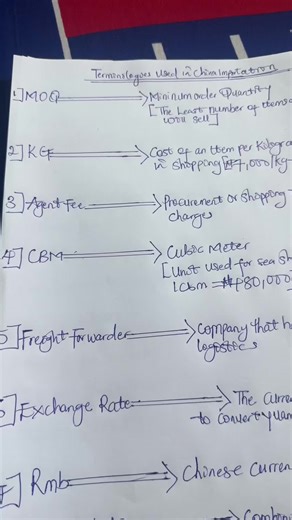 Terminologies Used in China Importation
1] MOQ ⟹ Minimum order Quantity
[The Least number of items
will sell]
2] KG ⟹ Cost of an item per Kilogra
in shopping [₦7,000/kg
3] Agent Fee ⟹ Procurement or Shopping
charges
4] CBM ⟹ Cubic Meter
[Unit used for sea Sh
1Cbm = ₦480,000
5] Freight Forwarder ⟹ Company that h
logostics
6] Exchange Rate ⟹ The Curren
to convert yuan
7] Rmb ⟹ Chinese Curren